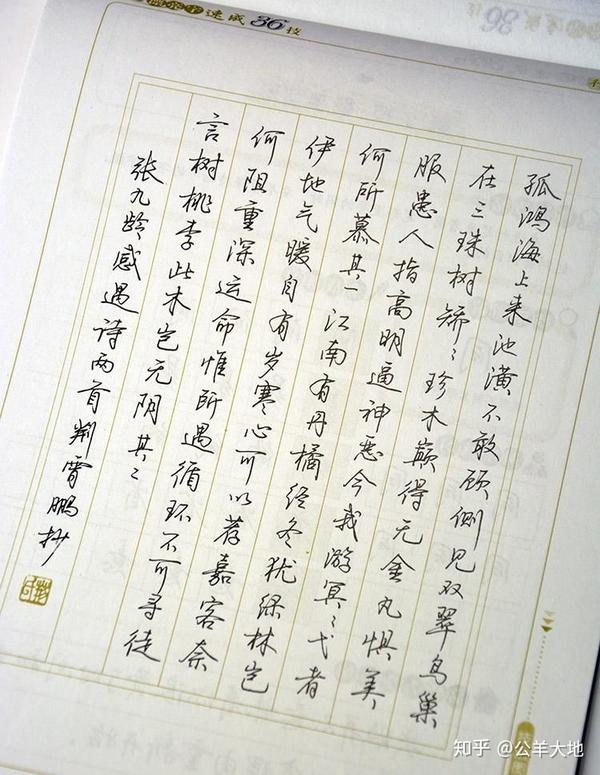 速成36技
孤鸿海上来池潢不敢顾侧见双翠鸟巢
在三珠树矫〻珍木巅得无金丸惧美
服患人指高明逼神恶今我游冥〻弋者
何所慕其一江南有丹橘经冬犹绿林岂
伊地气暖自有岁寒心可以荐嘉客奈
何阻重深运命惟所遇循环不可寻徒
言树桃李此木岂无阴其二
张九龄感遇诗两首荆霄鹏抄
知乎 @公羊大地